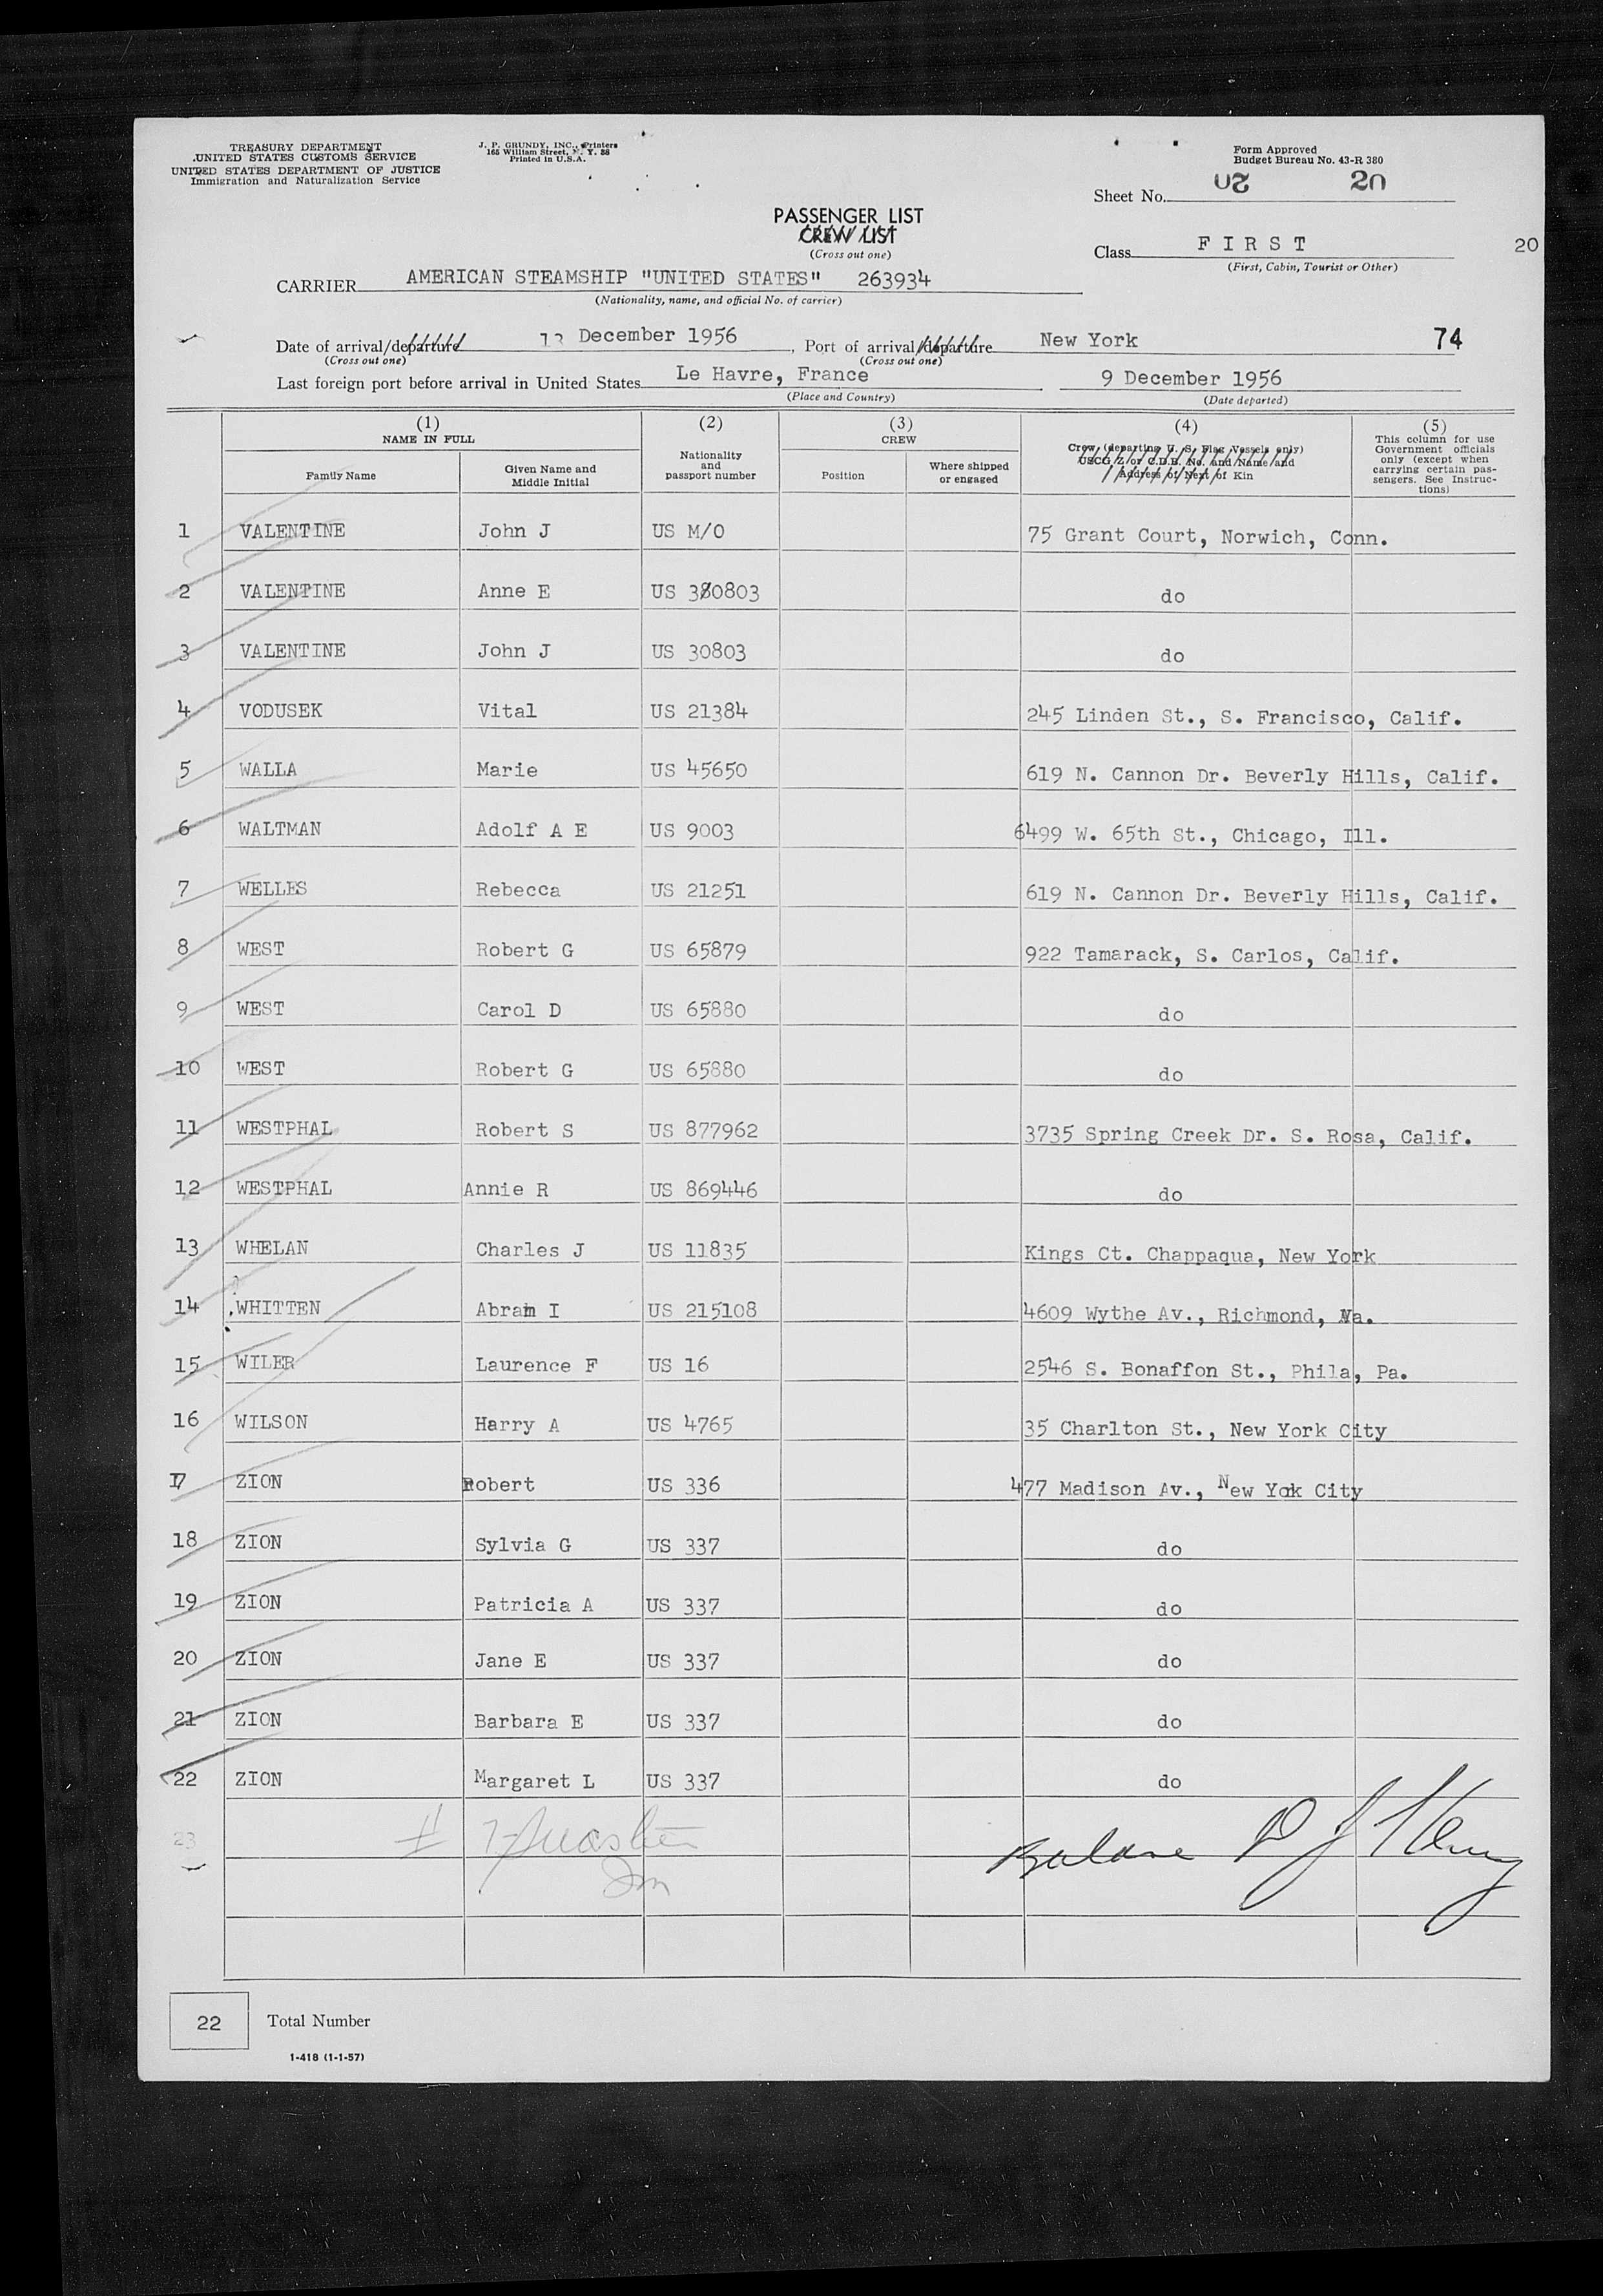 TREASURY DEPARTMENT
UNITED STATES CUSTOMS SERVICE
UNITED STATES DEPARTMENT OF JUSTICE
Immigration and Naturalization Service
J. P. GRUNDY, INC., Printers
165 William Street, N. Y. 38
Printed in U.S.A.
Form Approved
Budget Bureau No. 43-R 380
Sheet No. 20 20
PASSENGER LIST
CREW LIST
(Cross out one)
Class FIRST 20
(First, Cabin, Tourist or Other)
CARRIER AMERICAN STEAMSHIP "UNITED STATES" 263934
(Nationality, name, and official No. of carrier)
Date of arrival/departure 13 December 1956, Port of arrival/departure New York 74
(Cross out one) (Cross out one)
Last foreign port before arrival in United States Le Havre, France 9 December 1956
(Place and Country) (Date departed)
(1) NAME IN FULL
Family Name
Given Name and Middle Initial
(2)
Nationality and passport number
(3) CREW
Position
Where shipped or engaged
(4)
Crew (departing U. S. Flag Vessels only)
USCG Z or C.D.B. No. and Name and
Address of Next of Kin
(5)
This column for use Government officials only (except when carrying certain passengers. See Instructions)
1 VALENTINE John J US M/O 75 Grant Court, Norwich, Conn.
2 VALENTINE Anne E US 380803 do
3 VALENTINE John J US 30803 do
4 VODUSEK Vital US 21384 245 Linden St., S. Francisco, Calif.
5 WALLA Marie US 45650 619 N. Cannon Dr. Beverly Hills, Calif.
6 WALTMAN Adolf A E US 9003 6499 W. 65th St., Chicago, Ill.
7 WELLES Rebecca US 21251 619 N. Cannon Dr. Beverly Hills, Calif.
8 WEST Robert G US 65879 922 Tamarack, S. Carlos, Calif.
9 WEST Carol D US 65880 do
10 WEST Robert G US 65880 do
11 WESTPHAL Robert S US 877962 3735 Spring Creek Dr. S. Rosa, Calif.
12 WESTPHAL Annie R US 869446 do
13 WHELAN Charles J US 11835 Kings Ct. Chappaqua, New York
14 WHITTEN Abram I US 215108 4609 Wythe Av., Richmond, Va.
15 WILER Laurence F US 16 2546 S. Bonaffon St., Phila, Pa.
16 WILSON Harry A US 4765 35 Charlton St., New York City
17 ZION Robert US 336 477 Madison Av., New Yok City
18 ZION Sylvia G US 337 do
19 ZION Patricia A US 337 do
20 ZION Jane E US 337 do
21 ZION Barbara E US 337 do
22 ZION Margaret L US 337 do
23
22 Total Number
1-418 (1-1-57)